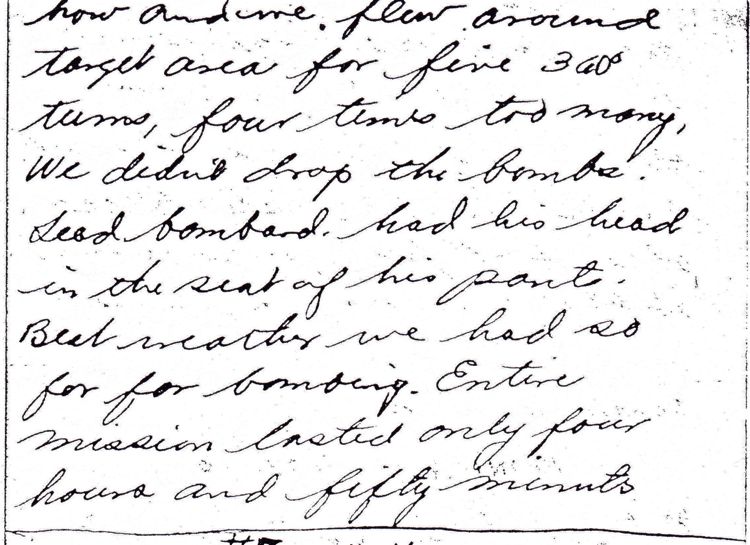 how and we. flew around
target area for five 360°
turns, four times too many,
We didn't drop the bombs.
Lead bombard. had his head
in the seat of his pants.
Best weather we had so
far for bombing. Entire
mission lasted only four
hours and fifty minuts